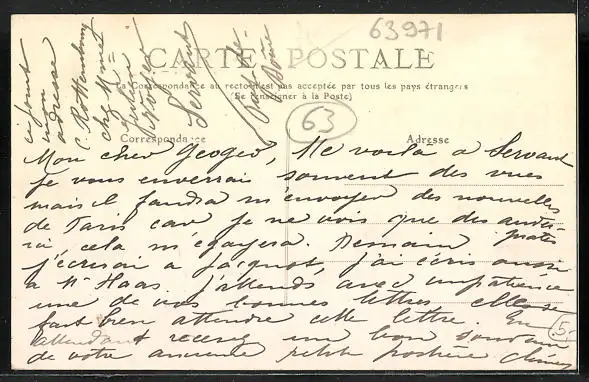 63971
CARTE POSTALE
La Correspondance au recto n'est pas acceptée par tous les pays étrangers
(Se renseigner à la Poste)
63
Correspondance
Adresse
ci-joint
mon
adresse
C. Rothembourg
chez Mme
Servant
Puy-de-
Dôme
Mon cher Georges, Me voilà à Servant
Je vous enverrai souvent des vues
mais il faudra m'envoyer des nouvelles
de Paris car je ne vois que des
cela m'égayera. Demain
j'écrirai à Jacquot, j'ai écris aussi
à Mr Haas. J'attends avec impatience
une de vos bonnes lettres
fait bien attendre cette lettre. En
attendant recevez un bon souvenir
de votre ancienne petite
5